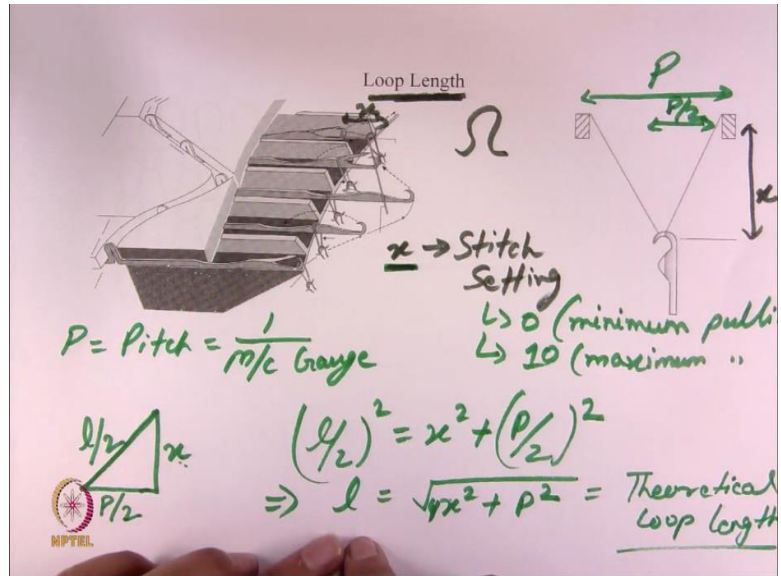 Loop Length
x
P
P/2
x
x → Stitch
Setting
↳ 0 (minimum pulli
↳ 10 (maximum "
P = Pitch = 1/m/c Gauge
l/2
x
P/2
(l/2)² = x² + (P/2)²
⇒ l = √4x² + P² = Theoretical
Loop Length
NPTEL